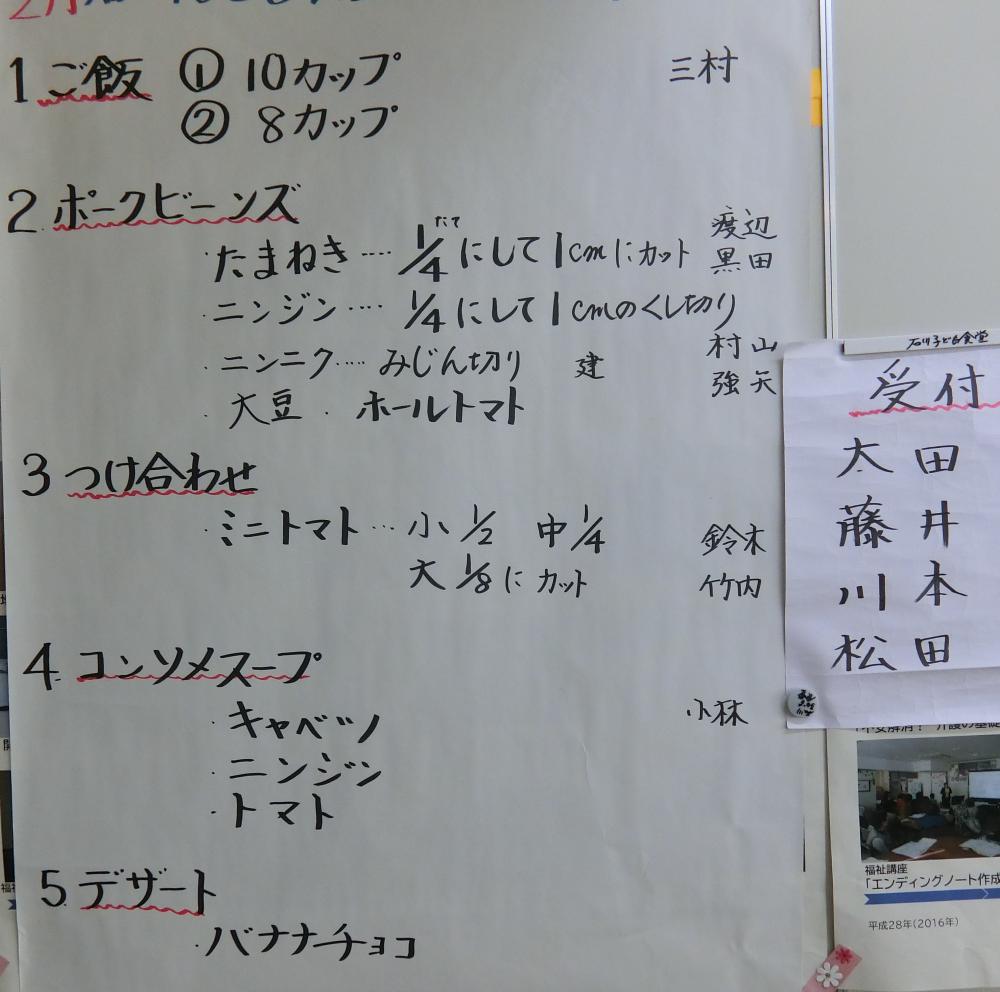 2月
1 ご飯 ① 10カップ 三村
② 8カップ
2 ポークビーンズ
・たまねき…. 1/4 たて にして1cmにカット 渡辺
黒田
・ニンジン…. 1/4にして1cmのくし切り
・ニンニク…. みじん切り 建 村山
強矢
・大豆 ・ ホールトマト
3 つけ合わせ
・ミニトマト… 小1/2 中1/4 鈴木
大1/8にカット 竹内
4. コンソメスープ
・キャベツ 小林
・ニンジン
・トマト
5 デザート
・バナナチョコ
石川子ども食堂
受付
太田
藤井
川本
松田
「不安解消！ 介護の基礎
福祉講座
「エンディングノート作成
平成28年(2016年)